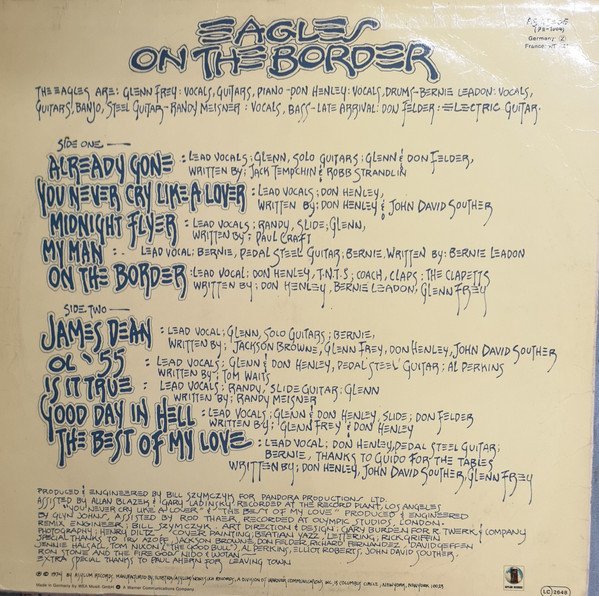 EAGLES
ON THE BORDER
Germany: Ⓩ
France:
THE EAGLES ARE: GLENN FREY: VOCALS, GUITARS, PIANO-DON HENLEY: VOCALS, DRUMS-BERNIE LEADON: VOCALS,
GUITARS, BANJO, STEEL GUITAR-RANDY MEISNER: VOCALS, BASS-LATE ARRIVAL: DON FELDER: ELECTRIC GUITAR.
SIDE ONE —
ALREADY GONE : LEAD VOCALS; GLENN, SOLO GUITARS; GLENN & DON FELDER,
WRITTEN BY; JACK TEMPCHIN & ROBB STRANDLIN
YOU NEVER CRY LIKE A LOVER : LEAD VOCALS; DON HENLEY,
WRITTEN BY: DON HENLEY & JOHN DAVID SOUTHER
MIDNIGHT FLYER : LEAD VOCALS; RANDY, SLIDE; GLENN,
WRITTEN BY; PAUL CRAFT
MY MAN : LEAD VOCAL: BERNIE, PEDAL STEEL GUITAR; BERNIE, WRITTEN BY: BERNIE LEADON
ON THE BORDER : LEAD VOCAL: DON HENLEY, T.N.T.S; COACH, CLAPS: THE CLAPETTS
WRITTEN BY; DON HENLEY, BERNIE LEADON, GLENN FREY
SIDE TWO —
JAMES DEAN : LEAD VOCAL; GLENN, SOLO GUITARS; BERNIE,
WRITTEN BY; JACKSON BROWNE, GLENN FREY, DON HENLEY, JOHN DAVID SOUTHER
OL' 55 : LEAD VOCALS; GLENN & DON HENLEY, PEDAL STEEL GUITAR: AL PERKINS
WRITTEN BY; TOM WAITS
IS IT TRUE : LEAD VOCALS; RANDY, SLIDE GUITAR: GLENN
WRITTEN BY; RANDY MEISNER
GOOD DAY IN HELL : LEAD VOCALS; GLENN & DON HENLEY, SLIDE; DON FELDER
WRITTEN BY; GLENN FREY & DON HENLEY
THE BEST OF MY LOVE : LEAD VOCAL: DON HENLEY, PEDAL STEEL GUITAR;
BERNIE, THANKS TO GUIDO FOR THE TABLES
WRITTEN BY; DON HENLEY, JOHN DAVID SOUTHER, GLENN FREY
PRODUCED & ENGINEERED BY BILL SZYMCZYK FOR PANDORA PRODUCTIONS LTD.
ASSISTED BY ALLAN BLAZEK & GARY LADINSKY; RECORDED AT THE RECORD PLANT, LOS ANGELES
"YOU NEVER CRY LIKE A LOVER" & "THE BEST OF MY LOVE" PRODUCED & ENGINEERED
BY GLYN JOHNS, ASSISTED BY ROD THAER, RECORDED AT OLYMPIC STUDIOS, LONDON.
REMIX ENGINEER; BILL SZYMCZYK ART DIRECTION & DESIGN: GARY BURDEN FOR R. TWERK & COMPANY
PHOTOGRAPHY: HENRY DILTZ COVER PAINTING: BEATIAN YAZZ, LETTERING; RICK GRIFFIN
SPECIAL THANKS TO IRV AZOFF, JACKSON BROWNE, DON FELDER, RICHARD FERNANDEZ, DAVID GEFFEN
JENNIE HALSALL, TOM NIXON ("THE GOOD BULL"), AL PERKINS, ELLIOT ROBERTS, JOHN DAVID SOUTHER,
RON STONE AND THE FIRE GOD! NIDO (I WOTAN)
EXTRA SPECIAL THANKS TO PAUL AHERN FOR LEAVING TOWN
Ⓟ © 1974 BY ASYLUM RECORDS, MANUFACTURED BY ELEKTRA/ASYLUM/NONESUCH RECORDS, A DIVISION OF WARNER COMMUNICATIONS INC. 15 COLUMBUS CIRCLE, NEW YORK, NEW YORK 10023
Made in Germany by WEA Musik GmbH A Warner Communications Company
ASYLUM RECORDS
LC 2648